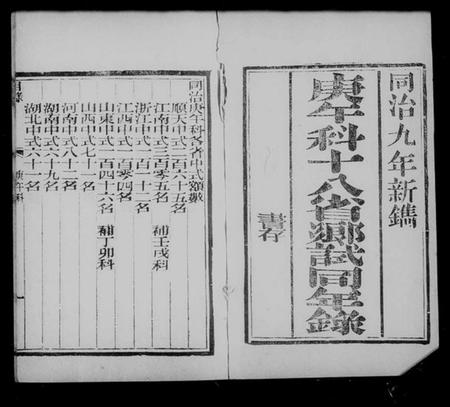 同治九年新鐫
庚午科十八省鄉試同年錄
書存
同治庚午科各省中式額數
順天中式二百六十五名
江南中式三百零五名 補壬戌科
浙江中式二百一十二名
江西中式一百零四名
山東中式一百四十六名 補丁卯科
山西中式七十一名
河南中式八十二名
湖南中式六十九名
湖北中式六十一名
目錄
庚午科